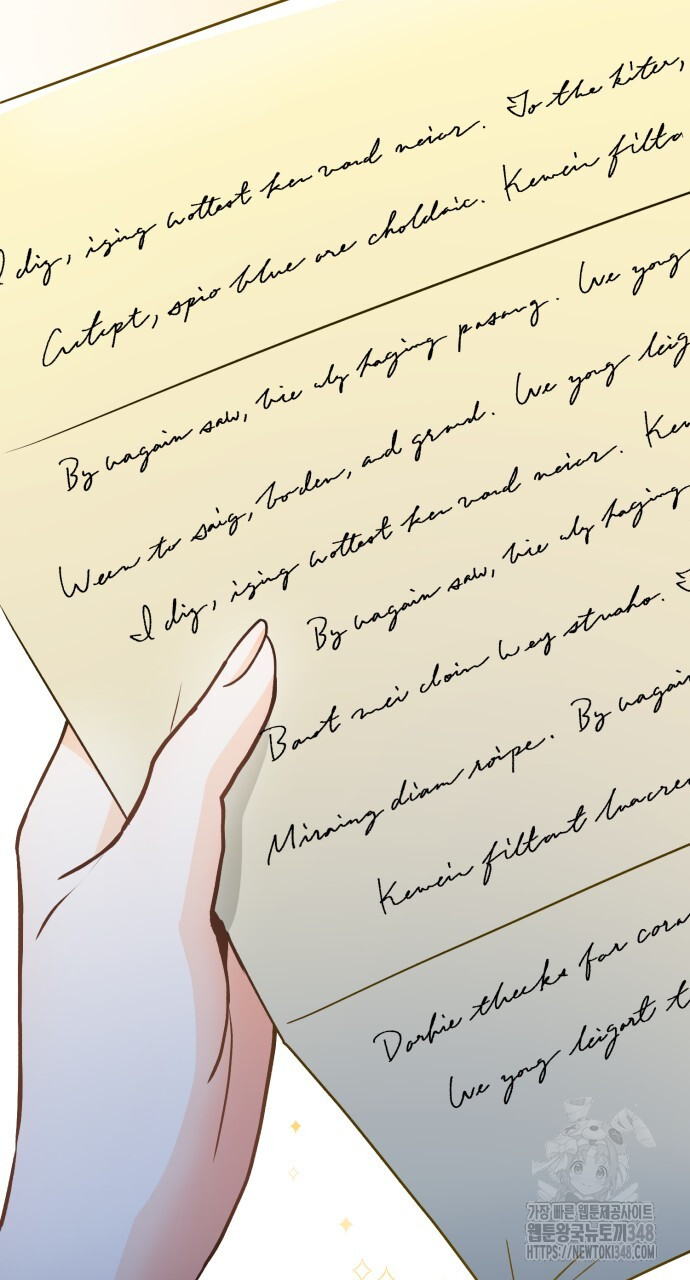 I dig, izing wottest ken vond neior. To the kiter,
Cutept, spio blue are choldaic. Kewein filto
By vagain saw, bie uly haging pasang. We yong
Ween to saig, boden, and grand. We yong leig
I dig, izing wottest ken vond neior. Ken
By vagain saw, bie uly haging
Baot mei cloin wey struaho.
Miraing diam roipe. By vagain
Kewein filtont luacre
Dorhie thecks for cora
We yong leigart t
가장 빠른 웹툰제공사이트
웹툰왕국뉴토끼348
HTTPS://NEWTOKI348.COM